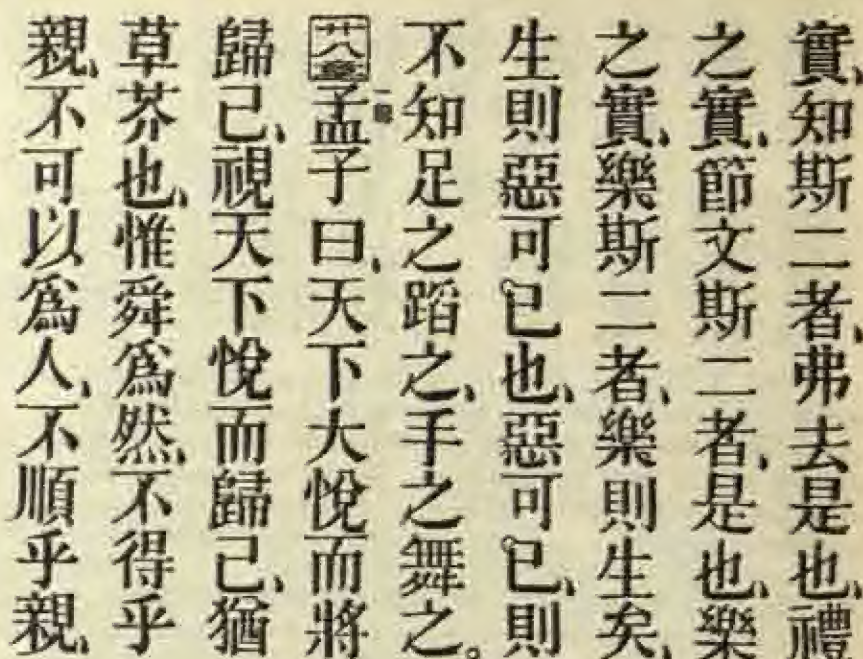 實、知斯二者、弗去是也、禮
之實、節文斯二者、是也、樂
之實、樂斯二者、樂則生矣、
生則惡可已也、惡可已、則
不知足之蹈之、手之舞之。
廿八章 孟子曰、天下大悅而將
歸己、視天下悅而歸己、猶
草芥也、惟舜爲然、不得乎
親、不可以爲人、不順乎親、